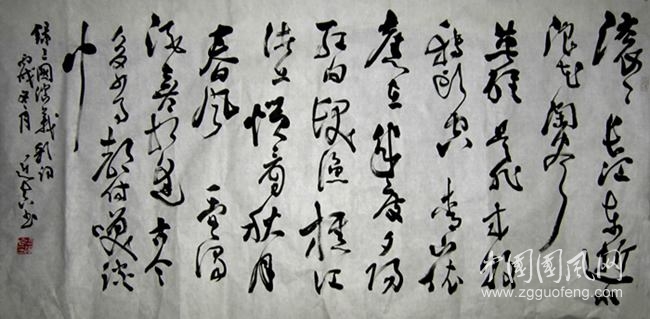 滚々长江东逝水
浪花淘尽
英雄是非成败
转头空青山依
旧在几度夕阳
红白发渔樵江
渚上惯看秋月
春风一壶浊
酒喜相逢古今
多少事都付笑谈
中
録三國演義词
丙戌五月
中国国风网
www.zgguofeng.com